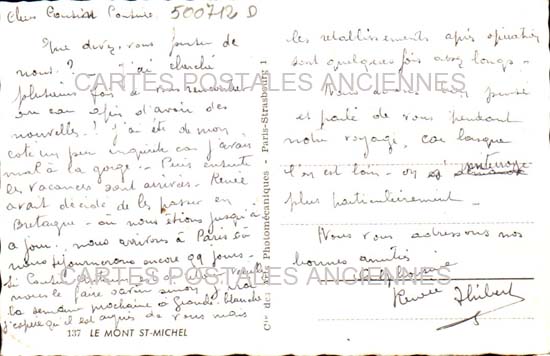 Chers Cousin Cousine 500712 D
Que devez-vous penser de
nous? - j'ai cherché
plusieurs fois à vous rencontrer
au car afin d'avoir des
nouvelles! J'ai été de mon
côté un peu inquiète car j'avais
mal à la gorge - Puis ensuite
les vacances sont arrivées. Renée
avait décidé de les passer en
Bretagne - où nous étions jusqu'à
ce jour. nous arrivons à Paris où
nous séjournerons encore 9 jours.
Si Cousin
nous le faire savoir sinon j'irai
la semaine prochaine à Grande-blanche
J'espère qu'il est auprès de vous mais
137 LE MONT ST-MICHEL
Cie des Arts Photomécaniques - Paris-Strasbourg 1
les rétablissements après opération
sont quelques fois assez longs -
Nous avons bien pensé
et parlé de vous pendant
notre voyage, car lorsque
l'on est loin - on s'
plus particulièrement -
Nous vous adressons nos
bonnes amitiés
Renée Thibert
CARTES POSTALES ANCIENNES
CARTES POSTALES ANCIENNES